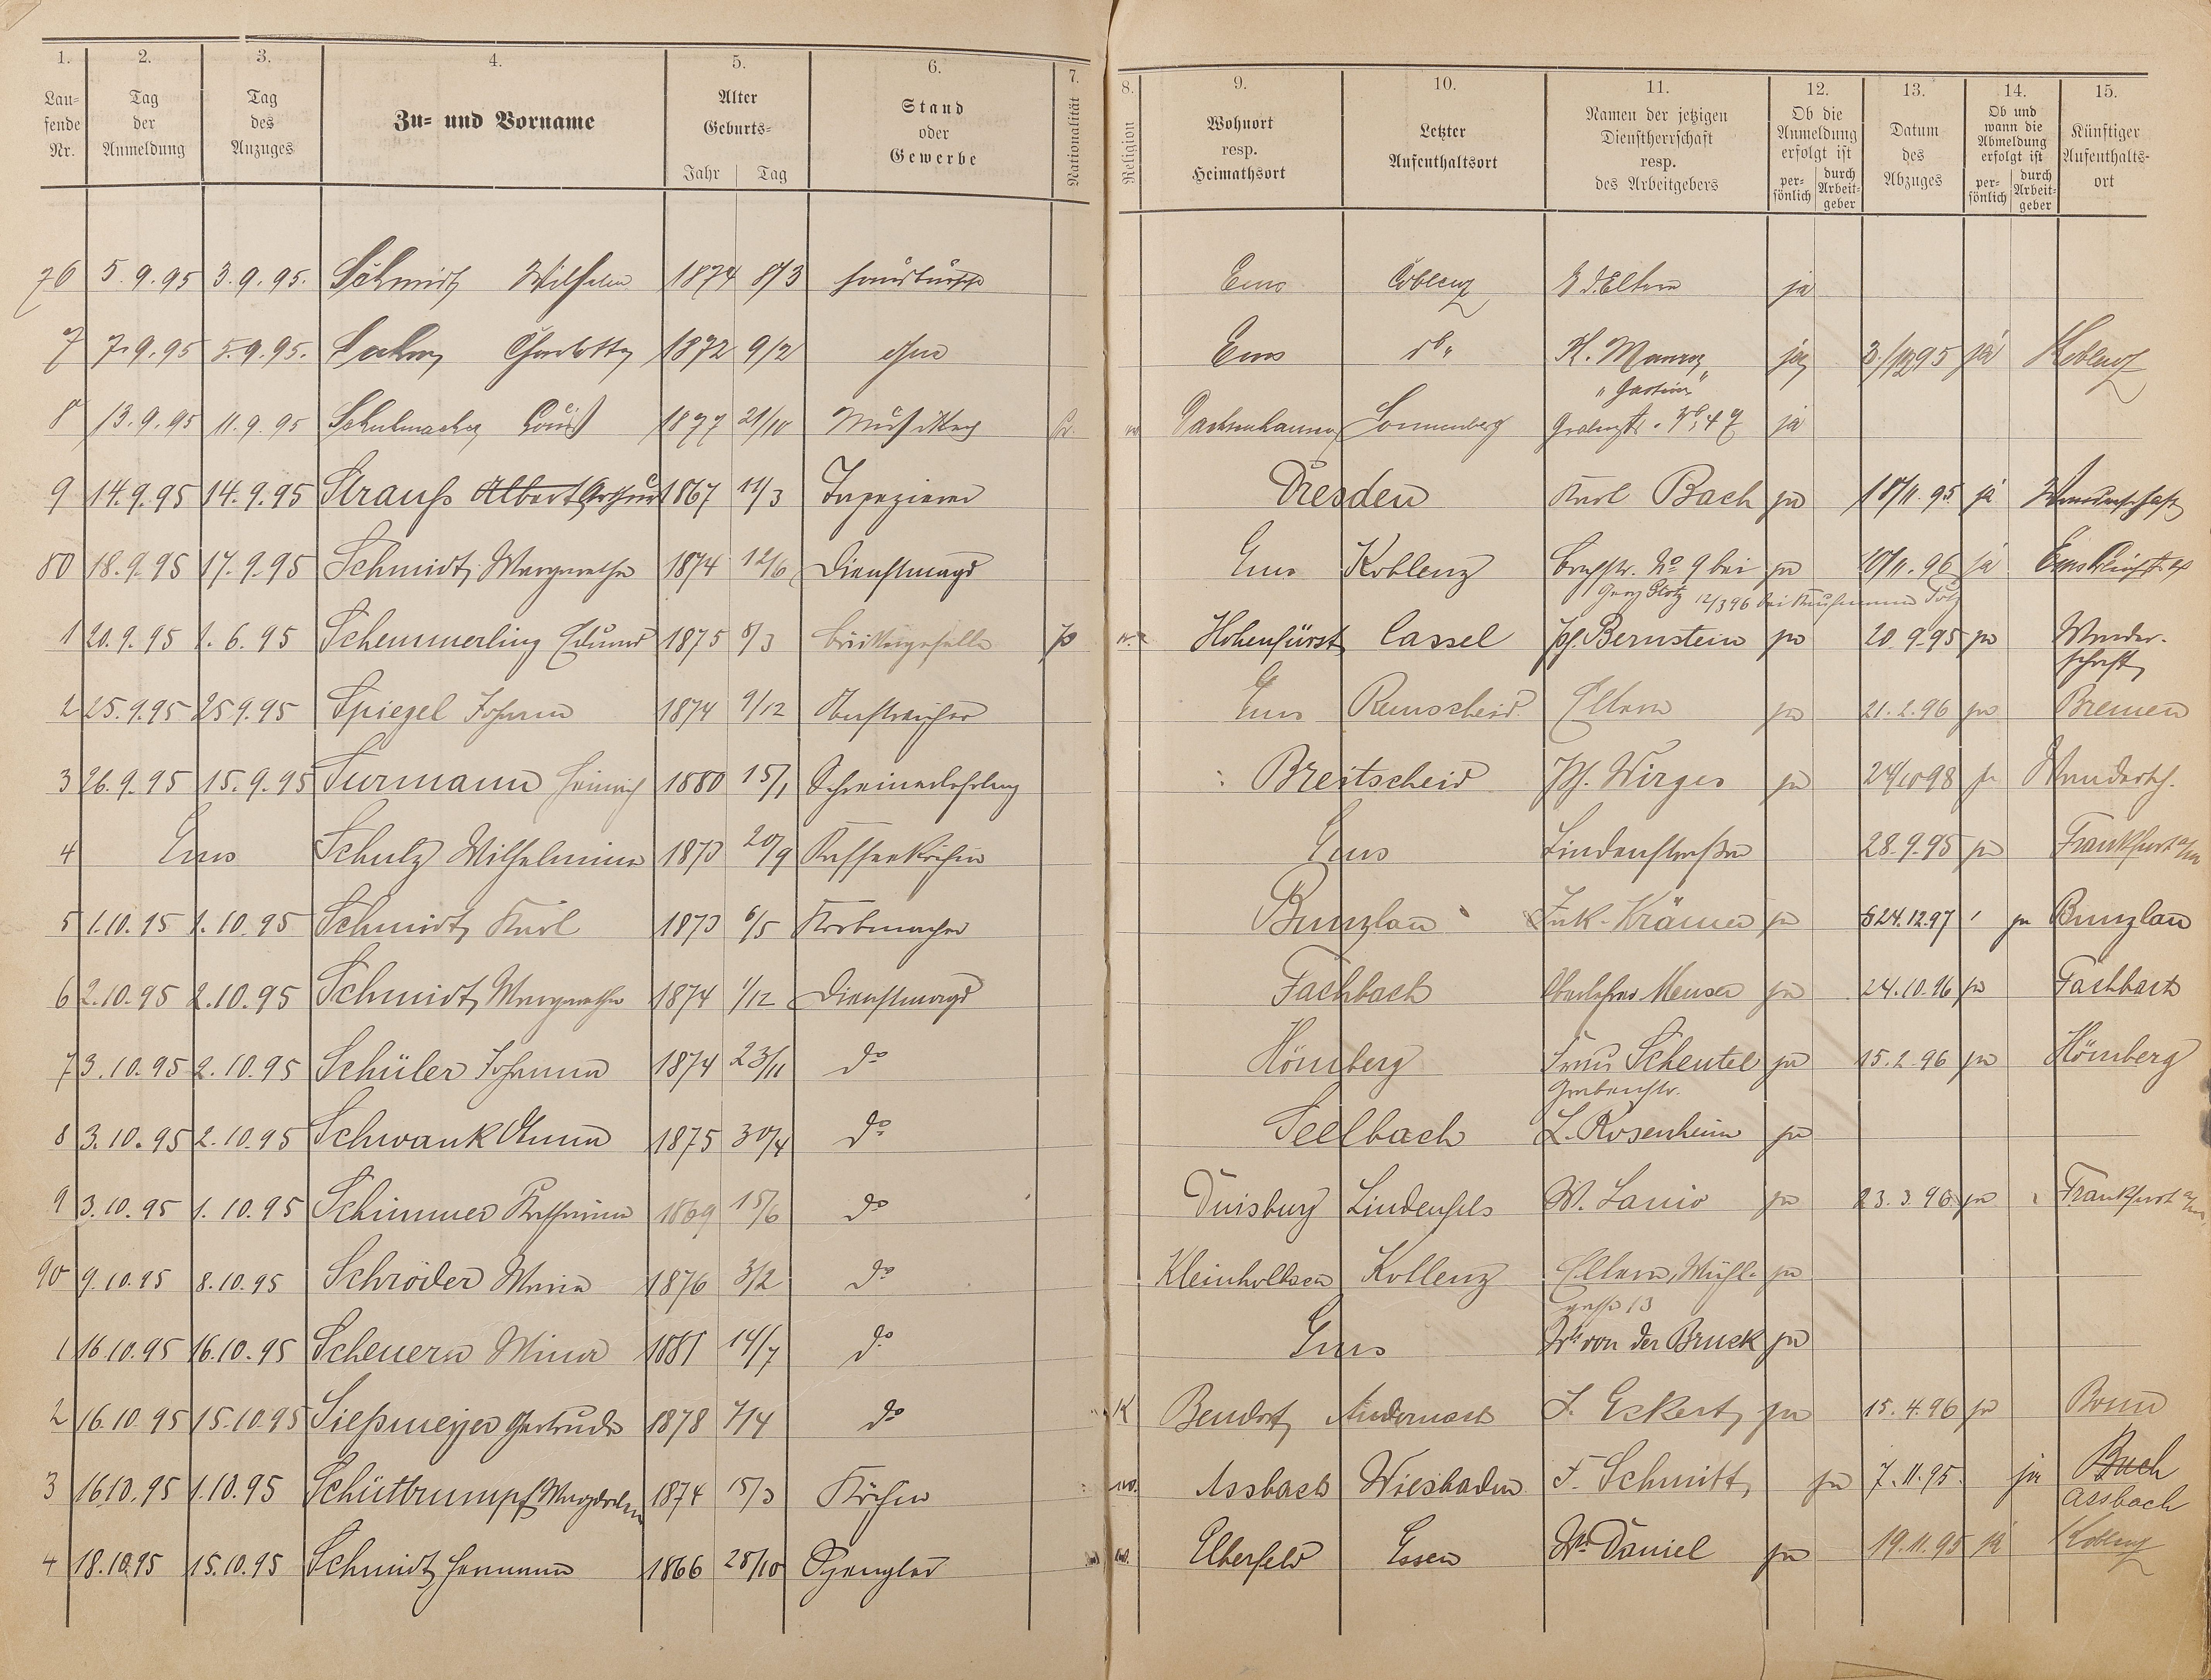 1. 2. 3. 4. 5. 6. 7. 8. 9. 10. 11. 12. 13. 14. 15.
Laufende Nr.
Tag der Anmeldung
Tag des Anzuges
Zu- und Vorname
Alter Geburts-
Jahr Tag
Stand oder Gewerbe
Nationalität
Religion
Wohnort resp. Heimathsort
Letzter Aufenthaltsort
Namen der jetzigen Dienstherrschaft resp. des Arbeitgebers
Ob die Anmeldung erfolgt ist
persönlich durch Arbeitgeber
Datum des Abzuges
Ob und wann die Abmeldung erfolgt ist
persönlich durch Arbeitgeber
Künftiger Aufenthaltsort
76 5.9.95 3.9.95. Schmidt Wilhelm 1874 8/3 Hausbursche Ems Coblenz d. Eltern ja
7 7.9.95 5.9.95. Charlotte 1872 9/2 ohne Ems do K. ja 3./12 95 ja Koblenz
8 13.9.95 11.9.95 Schuhmacher Louis 1877 21/10 Musiker Dachsenhausen Sonnenberg Grabenstr. No 47 ja
9 14.9.95 14.9.95 Strauß Albert Arthur 1867 11/3 Tapezierer Dresden Karl Bach ja 18/11.95 ja Wanderschaft
80 18.9.95 17.9.95 Schmidt Margarethe 1874 12/6 Dienstmagd Ems Koblenz No 9 bei ja 10/11.96 ja Ems
Georg 12/3 96 bei Kaufmann
1 20.9.95 1.6.95 Schemmerling Eduard 1875 8/3 Hohenfürst Cassel Jos. Bernstein ja 20.9.95 ja Wanderschaft
2 25.9.95 25 9.95 Spiegel Johann 1874 9/12 Anstreicher Ems Remscheid Eltern ja 21.2.96 ja Bremen
3 26.9.95 15.9.95 Surmann Heinrich 1880 15/1 Schreinerlehrling Breitscheid Jos. Wirges ja 24/10 98 ja Wandersch.
4 Ems Schulz Wilhelmine 1873 20/9 Kaffeeköchin Ems Lindenstraße 28.9.95 ja Frankfurt a/m
5 1.10.95 1.10.95 Schmidt Karl 1873 6/5 Korbmacher Bunzlau Krämer ja 24.12.97 ja Bunzlau
6 2.10.95 2.10.95 Schmidt Margarethe 1874 1/12 Dienstmagd Fachbach Oberlehrer Menser ja 24.10.96 ja Fachbach
7 3.10.95 2.10.95 Schüler Johanna 1874 23/11 do Hömberg Frau Scheutel ja 15.2.96 ja Hömberg
Grabenstr.
8 3.10.95 2.10.95 Schwank Anna 1875 30/4 do Seelbach L. Rosenheim ja
9 3.10.95 1.10.95 Schimmer Katharina 1869 15/6 do Duisburg Lindenfels W. Lanio ja 23.3.96 ja Frankfurt a/m
90 9.10.95 8.10.95 Schröder Maria 1876 3/2 do Koblenz Eltern, Mühlgasse 13 ja
1 16.10.95 16.10.95 Scheuern Mina 1881 14/7 do Ems von der Bruck ja
2 16.10.95 15.10.95 Sießmeyer Gertrude 1878 7/4 do K Bendorf Andernach J. Eckert ja 15.4.96 ja Bonn
3 16.10.95 1.10.95 Schüttrumpf Magdalena 1874 15/3 Köchin Assbach Wiesbaden F. Schmitt ja 7.11.95. ja Buch
Assbach
4 18.10.95 15.10.95 Schmidt Hermann 1866 28/10 Spengler Elberfeld Essen Daniel ja 19.11.95 ja Koblenz